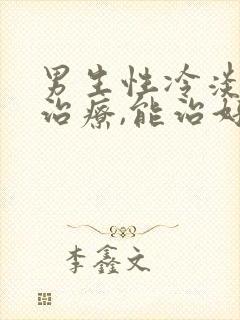 男生性冷淡
治療,能治好
李鑫文